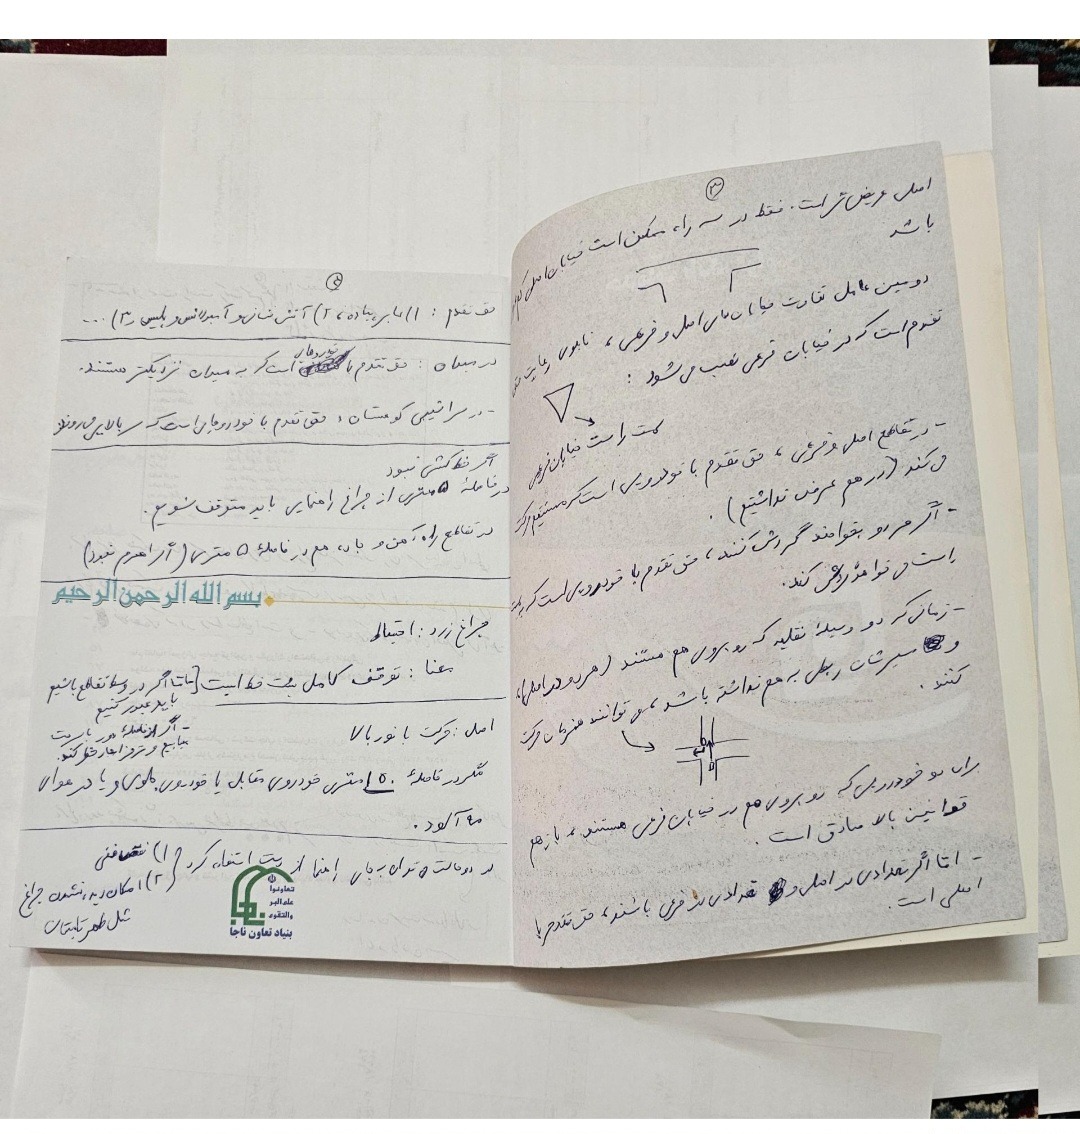 ۳
اصلی عریض‌تر است. فقط در سه راه، ممکن است خیابان اصلی
باشد
دومین عامل تفاوت خیابان‌های اصلی و فرعی، تابلوی رعایت حق
تقدم است که در خیابان فرعی نصب می‌شود:
سمت راست خیابان فرعی
- در تقاطع اصلی و فرعی، حق تقدم با خودرویی است که مستقیم حرکت
می‌کند (در هم عرض نداشتیم).
- اگر هر دو بخواهند گردش کنند، حق تقدم با خودرویی است که به
راست می‌خواهد گردش کند.
- زمانی که دو وسیلهٔ نقلیه که روبروی هم هستند (هر دو در اصلی)،
و مسیرشان ربطی به هم نداشته باشد، می‌توانند همزمان حرکت
کنند.
برای دو خودرویی که روبروی هم در خیابان فرعی هستند، باز هم
قوانین بالا صادق است.
- اما اگر تعدادی در اصلی و تعدادی در فرعی باشند، حق تقدم با
اصلی است.
۴
حق تقدم: ۱) عابر پیاده، ۲) آتش‌نشانی و آمبولانس و پلیس، ۳) ...
خودروهایی
در میدان: حق تقدم با است که به میدان نزدیکتر هستند.
- در سراشیبی کوهستان، حق تقدم با خودروهایی است که سربالایی می‌روند
اگر خط‌کشی نبود
در فاصلهٔ ۵ متری از چراغ راهنمایی باید متوقف شویم.
در تقاطع راه‌آهن و جاده هم در فاصلهٔ ۵ متری (اگر اهرم نبود)
بسم الله الرحمن الرحیم
چراغ زرد: احتیاط
معنا: توقف کامل پشت خط ایست [اما اگر در وسط تقاطع باشیم
باید عبور کنیم
اصل: حرکت با نور بالا
مگر در فاصلهٔ ۱۵۰ متری خودروی مقابل یا خودروی جلوی و یا در هوای
مه‌آلود.
در دو حالت می‌توان به جای راهنما از دست استفاده کرد ۱) نقص فنی
۲) امکان دیده نشدن چراغ
مثل ظهر تابستان
تعاونوا
علی البر
والتقوی
ناجا
بنیاد تعاون ناجا